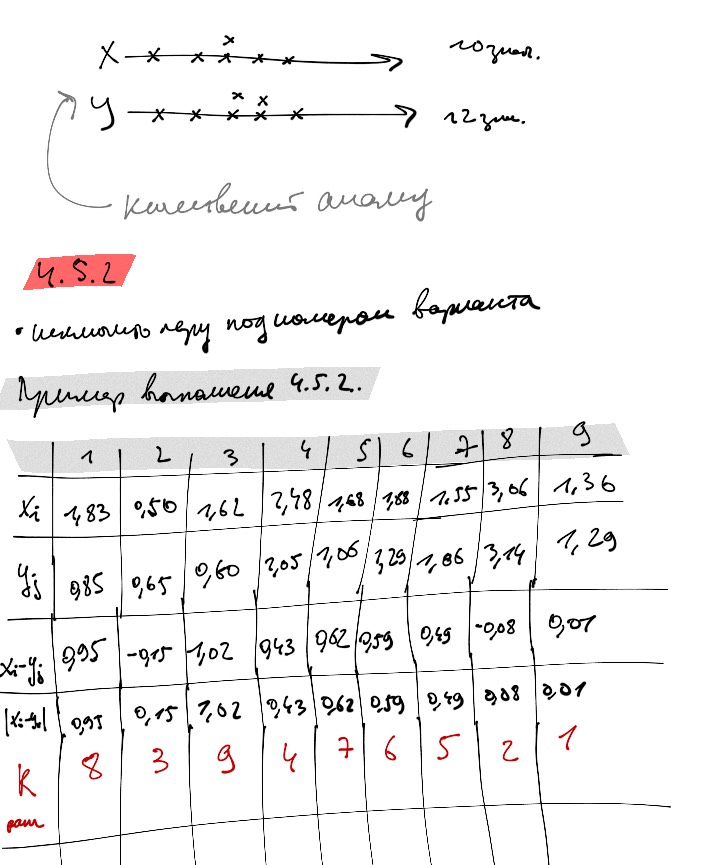 X 10 знач.
y 12 зн.
4.5.2
• исключить пару под номером варианта
Пример выполнения 4.5.2.
1 2 3 4 5 6 7 8 9
xi 1,83 0,50 1,62 2,48 1,68 1,88 1,55 3,06 1,36
yj 0,85 0,65 0,60 2,05 1,06 1,29 1,06 3,14 1,29
xi-yj 0,95 -0,15 1,02 0,43 0,62 0,59 0,49 -0,08 0,01
0,95 0,15 1,02 0,43 0,62 0,59 0,49 0,08 0,01
R 8 3 9 4 7 6 5 2 1
ранг